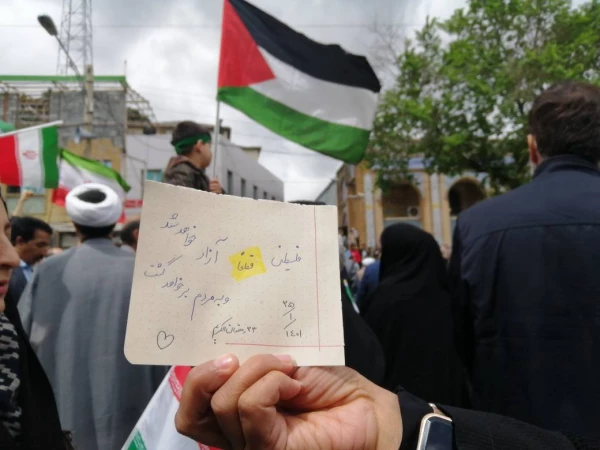 فلسطین قطعا آزاد خواهد شد
و به مردم برخواهد گشت
۲۵/۱/۱۴۰۱
۲۳ رمضان الکریم